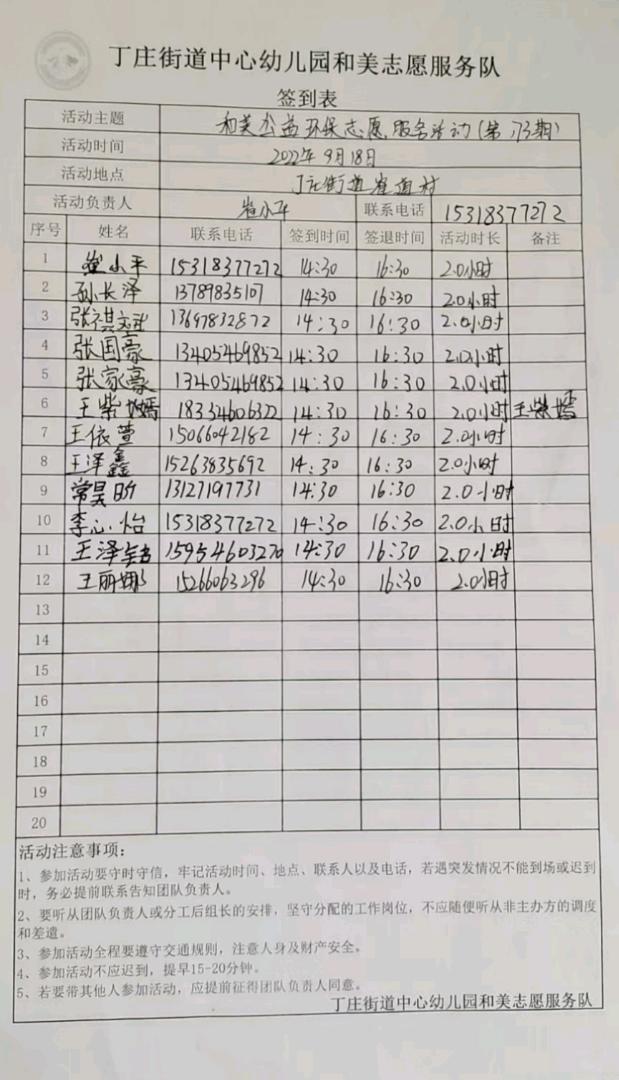 丁庄街道中心幼儿园和美志愿服务队
签到表
活动主题 和美公益环保志愿服务活动(第173期)
活动时间 2022年9月18日
活动地点 丁庄街道崔道村
活动负责人 崔小平 联系电话 15318377272
序号 姓名 联系电话 签到时间 签退时间 活动时长 备注
1 崔小平 15318377272 14:30 16:30 2.0小时
2 孙长泽 13789835107 14:30 16:30 2.0小时
3 张祺 13697832872 14:30 16:30 2.0小时
4 张国豪 13405469852 14:30 16:30 2.0小时
5 张家豪 13405469852 14:30 16:30 2.0小时
6 王紫嫣 18354606322 14:30 16:30 2.0小时 王紫嫣
7 王依萱 15066042182 14:30 16:30 2.0小时
8 王泽鑫 15263835692 14:30 16:30 2.0小时
9 常昊昕 13127197731 14:30 16:30 2.0小时
10 李心怡 15318377272 14:30 16:30 2.0小时
11 王泽 15954603270 14:30 16:30 2.0小时
12 王丽娜 15266063296 14:30 16:30 2.0小时
13
14
15
16
17
18
19
20
活动注意事项：
1、参加活动要守时守信，牢记活动时间、地点、联系人以及电话，若遇突发情况不能到场或迟到
时，务必提前联系告知团队负责人。
2、要听从团队负责人或分工后组长的安排，坚守分配的工作岗位，不应随便听从非主办方的调度
和差遣。
3、参加活动全程要遵守交通规则，注意人身及财产安全。
4、参加活动不应迟到，提早15-20分钟。
5、若要带其他人参加活动，应提前征得团队负责人同意。
丁庄街道中心幼儿园和美志愿服务队